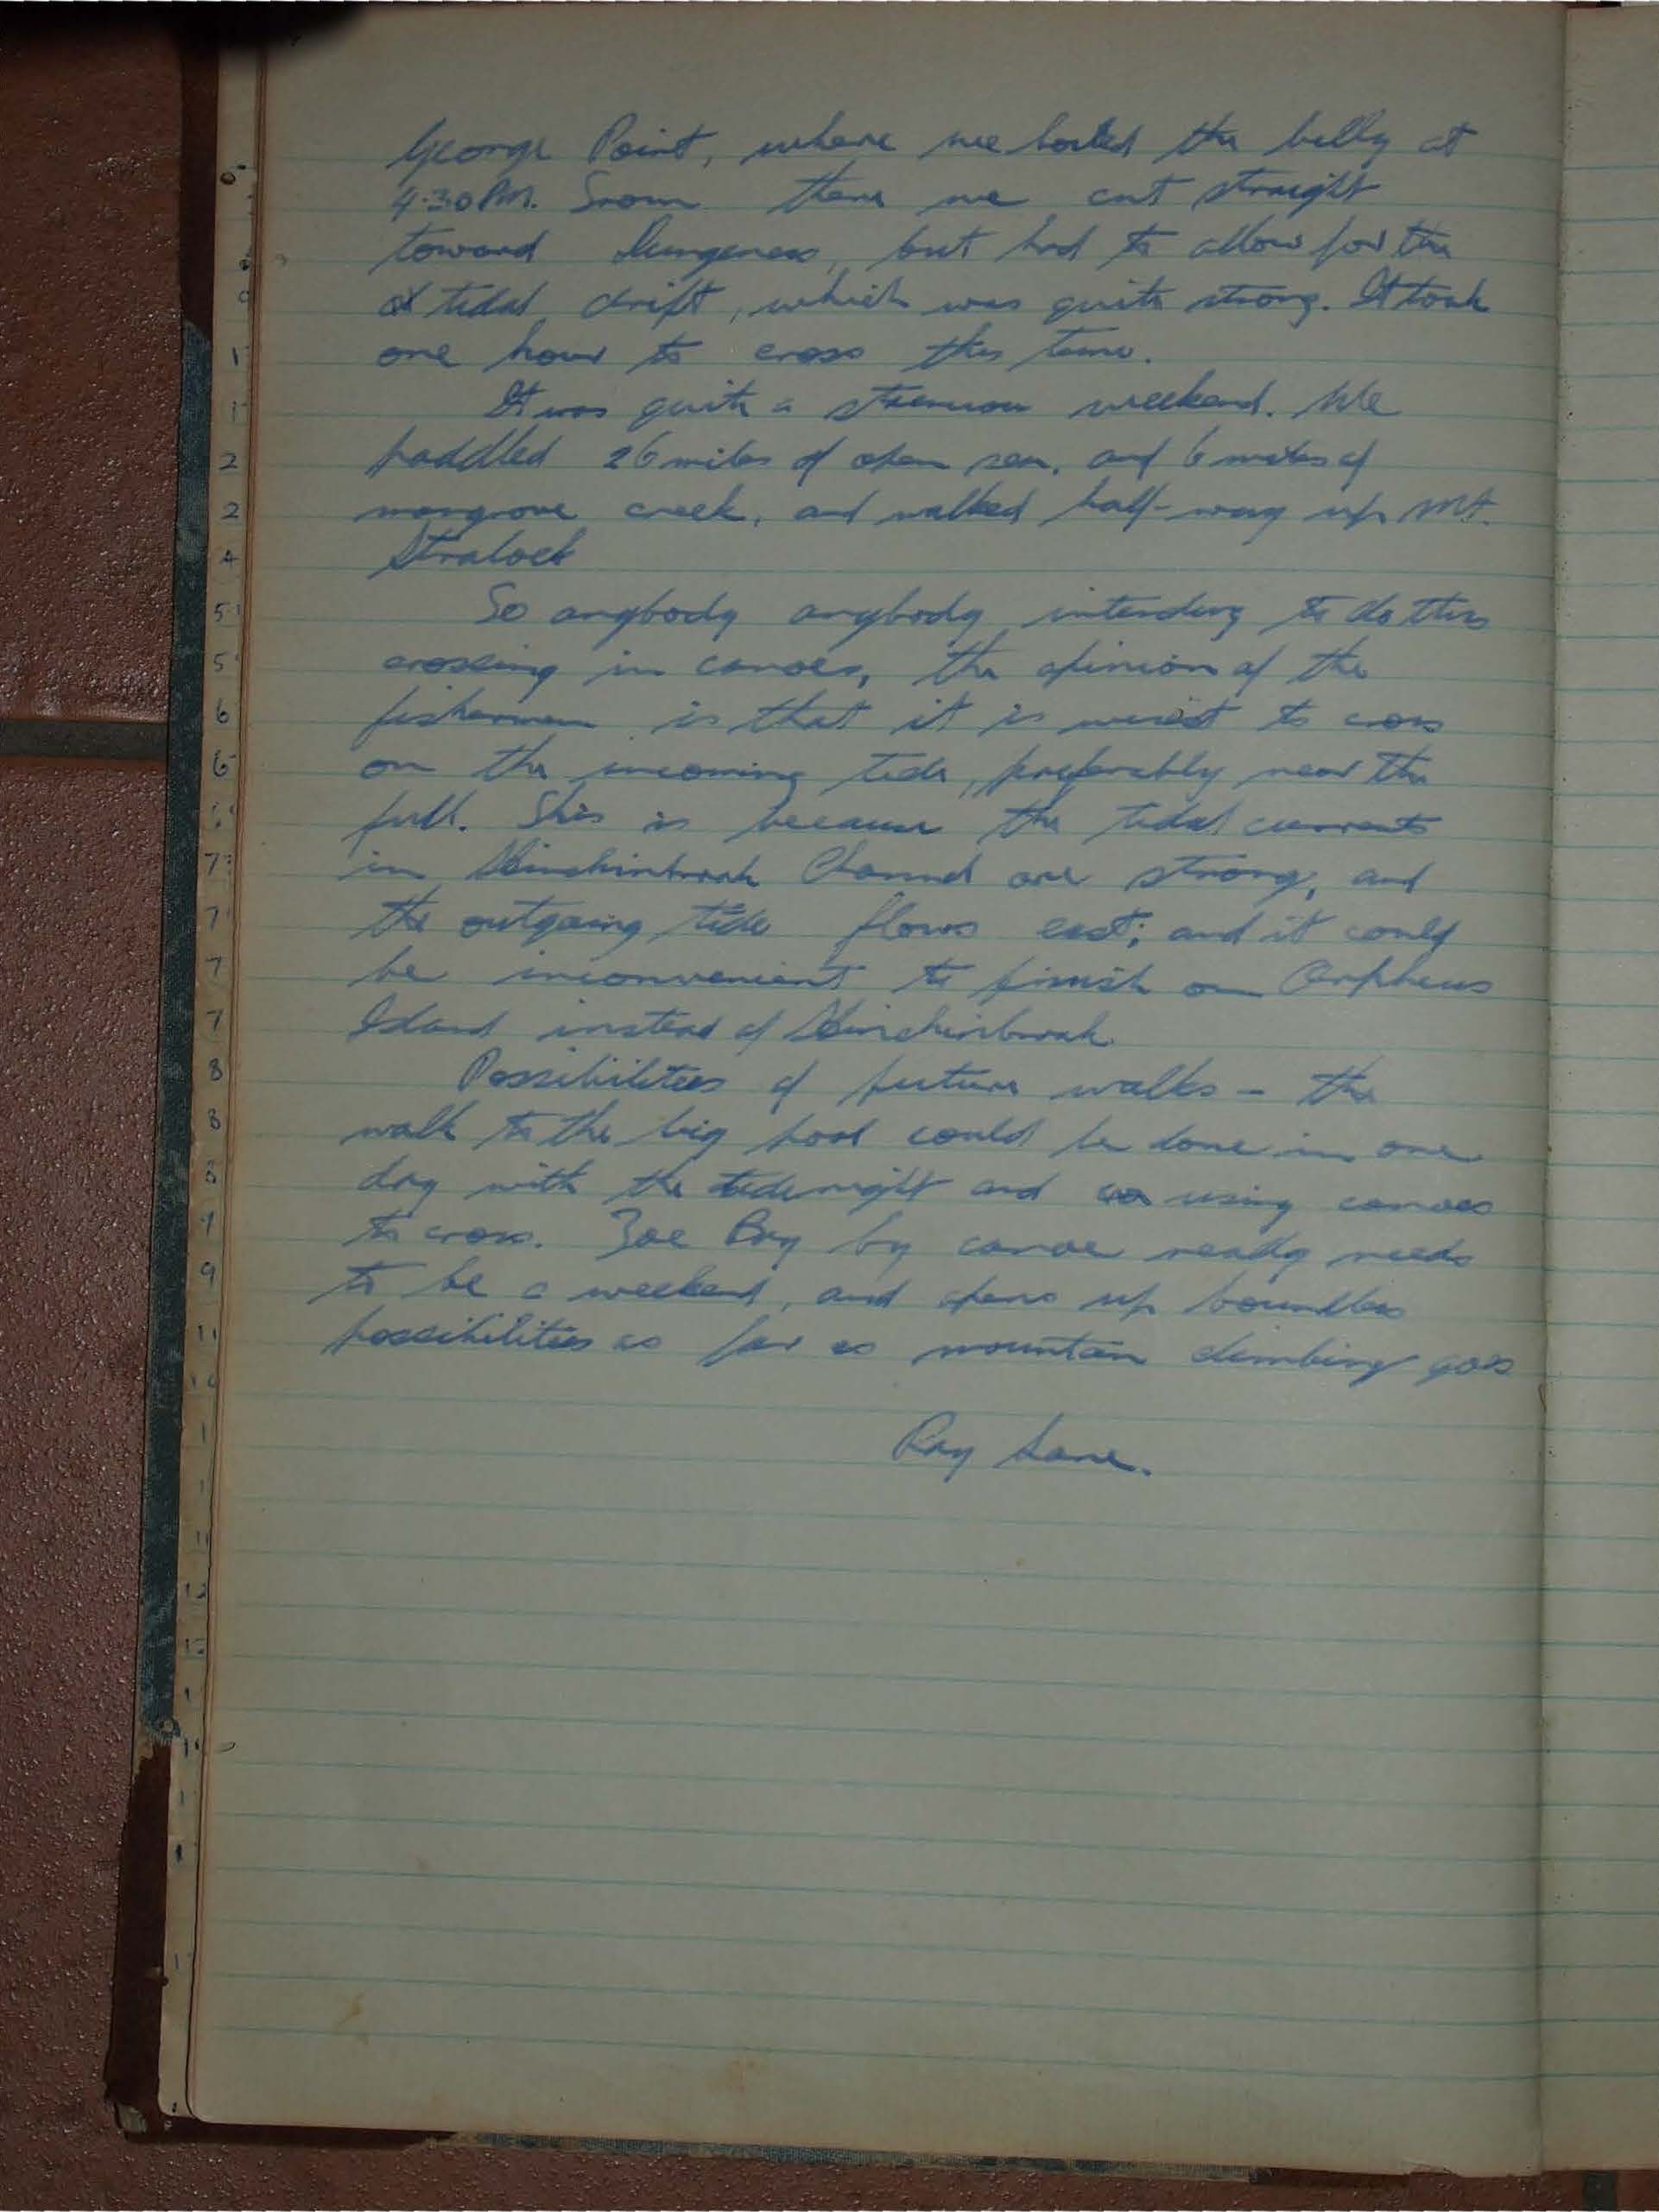 George Point, where we boiled the billy at
4.30 PM. From there we cut straight
toward Dungeness, but had to allow for the
tidal drift, which was quite strong. It took
one hour to cross this time.
It was quite a strenuous weekend. We
paddled 26 miles of open sea, and 6 miles of
mangrove creek, and walked half-way up Mt.
Straloch
So anybody anybody intending to do this
crossing in canoes, the opinion of the
fishermen is that it is wisest to cross
on the incoming tide, preferably near the
full. This is because the tidal currents
in Hinchinbrook Channel are strong, and
the outgoing tide flows east; and it could
be inconvenient to finish on Orpheus
Island instead of Hinchinbrook.
Possibilities of future walks - the
walk to the big pool could be done in one
day with the tide right and using canoes
to cross. Zoe Bay by canoe really needs
to be a weekend, and opens up boundless
possibilities as far as mountain climbing goes
Ray Lane.